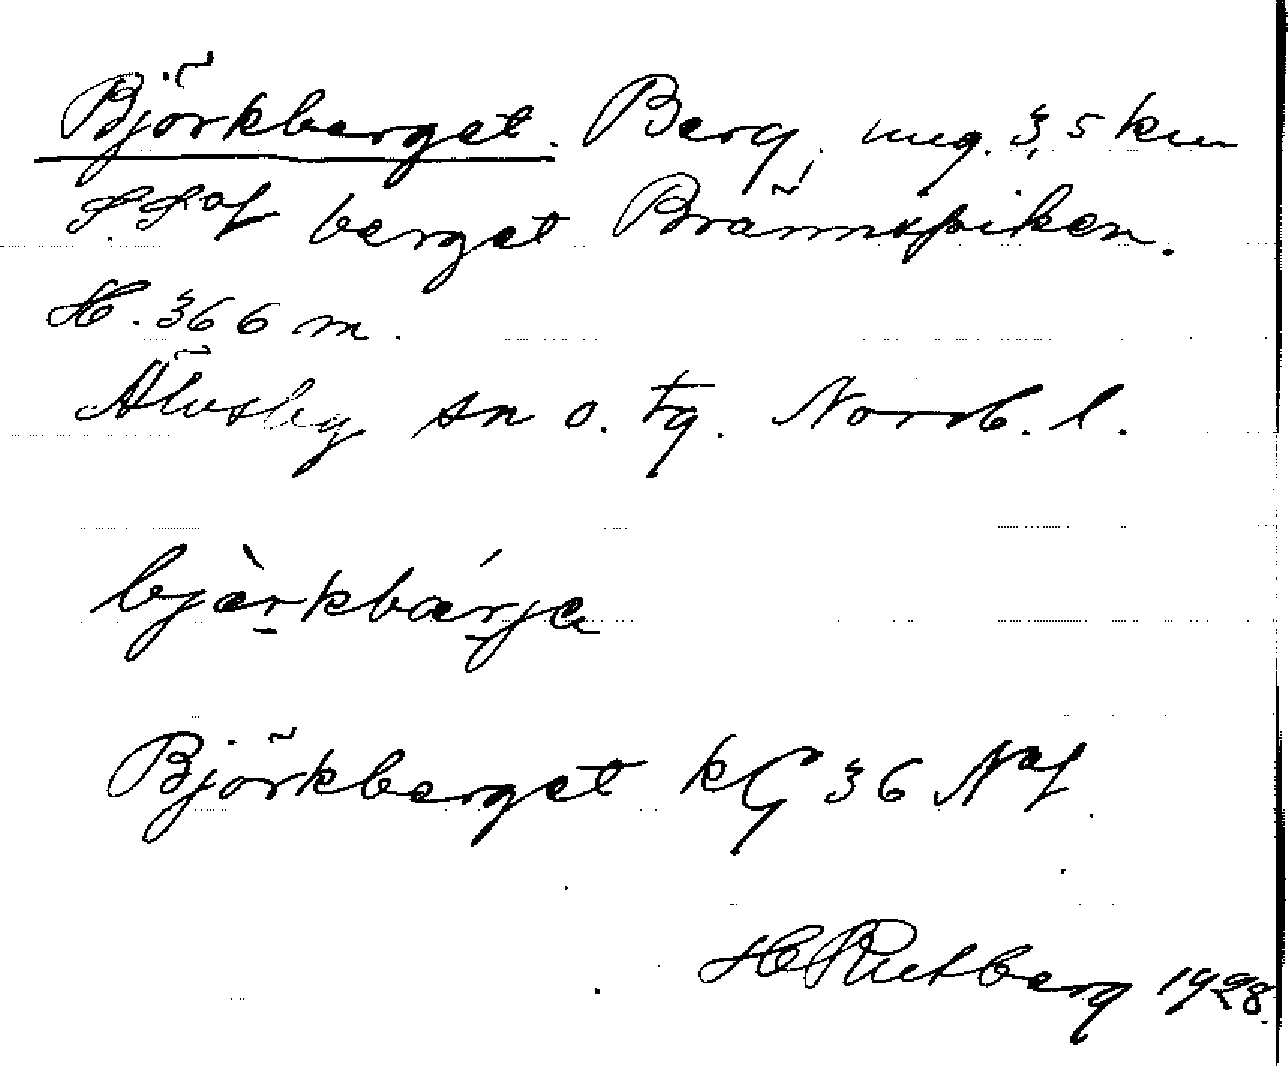 Björkberget. Berg, ung. 3,5 km
S.S of berget Brännspiken.
H. 366 m.
Älvsby sn o. tg. Norrb. l.
bjæ̀rkbǽrjɑ
Björkberget kG 36 Nf
H Rutberg 1928